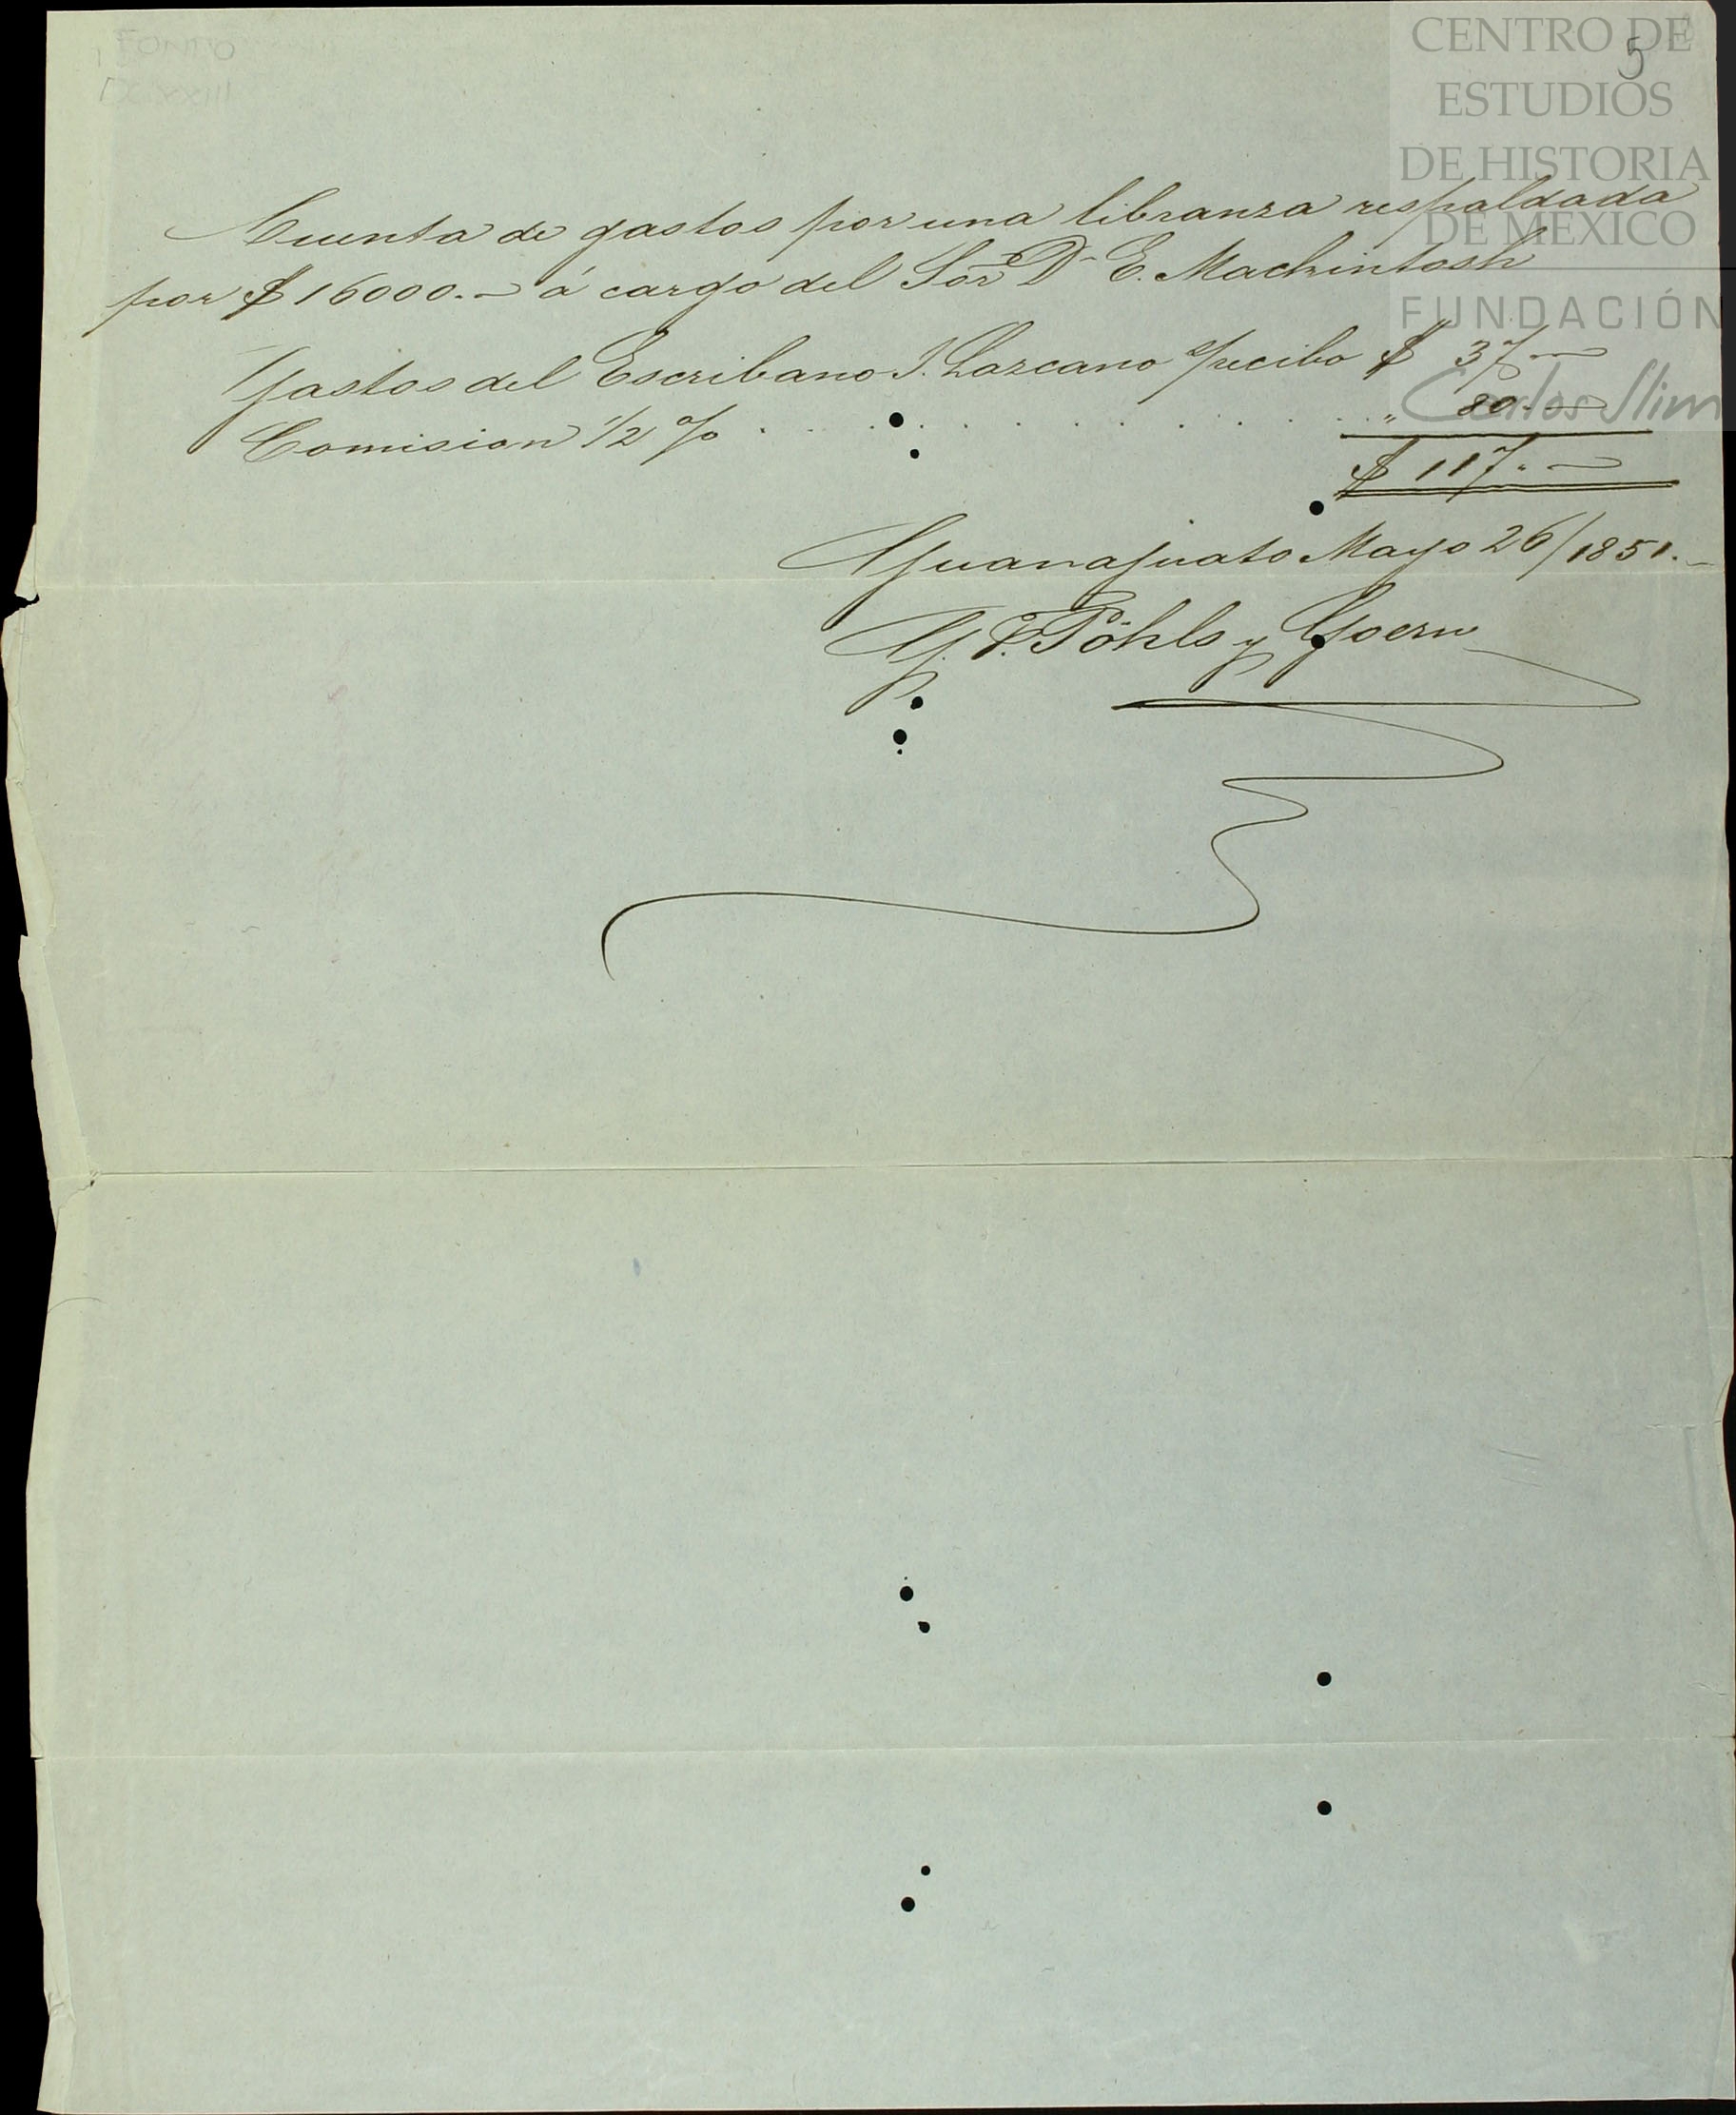 FONDO
IX XXIII
5
CENTRO DE
ESTUDIOS
DE HISTORIA
DE MEXICO
FUNDACIÓN
Carlos Slim
Cuenta de gastos por una libranza respaldada
por $ 16000.- á cargo del Sor Dn E. Mackintosh
Gastos del Escribano J. Lazcano recibo $ 37.-
Comision 1/2 % . . . . . . . . . . . . " 80.-
$ 117.-
Guanajuato Mayo 26/1851.-
G. F. Pöhls y Goerne